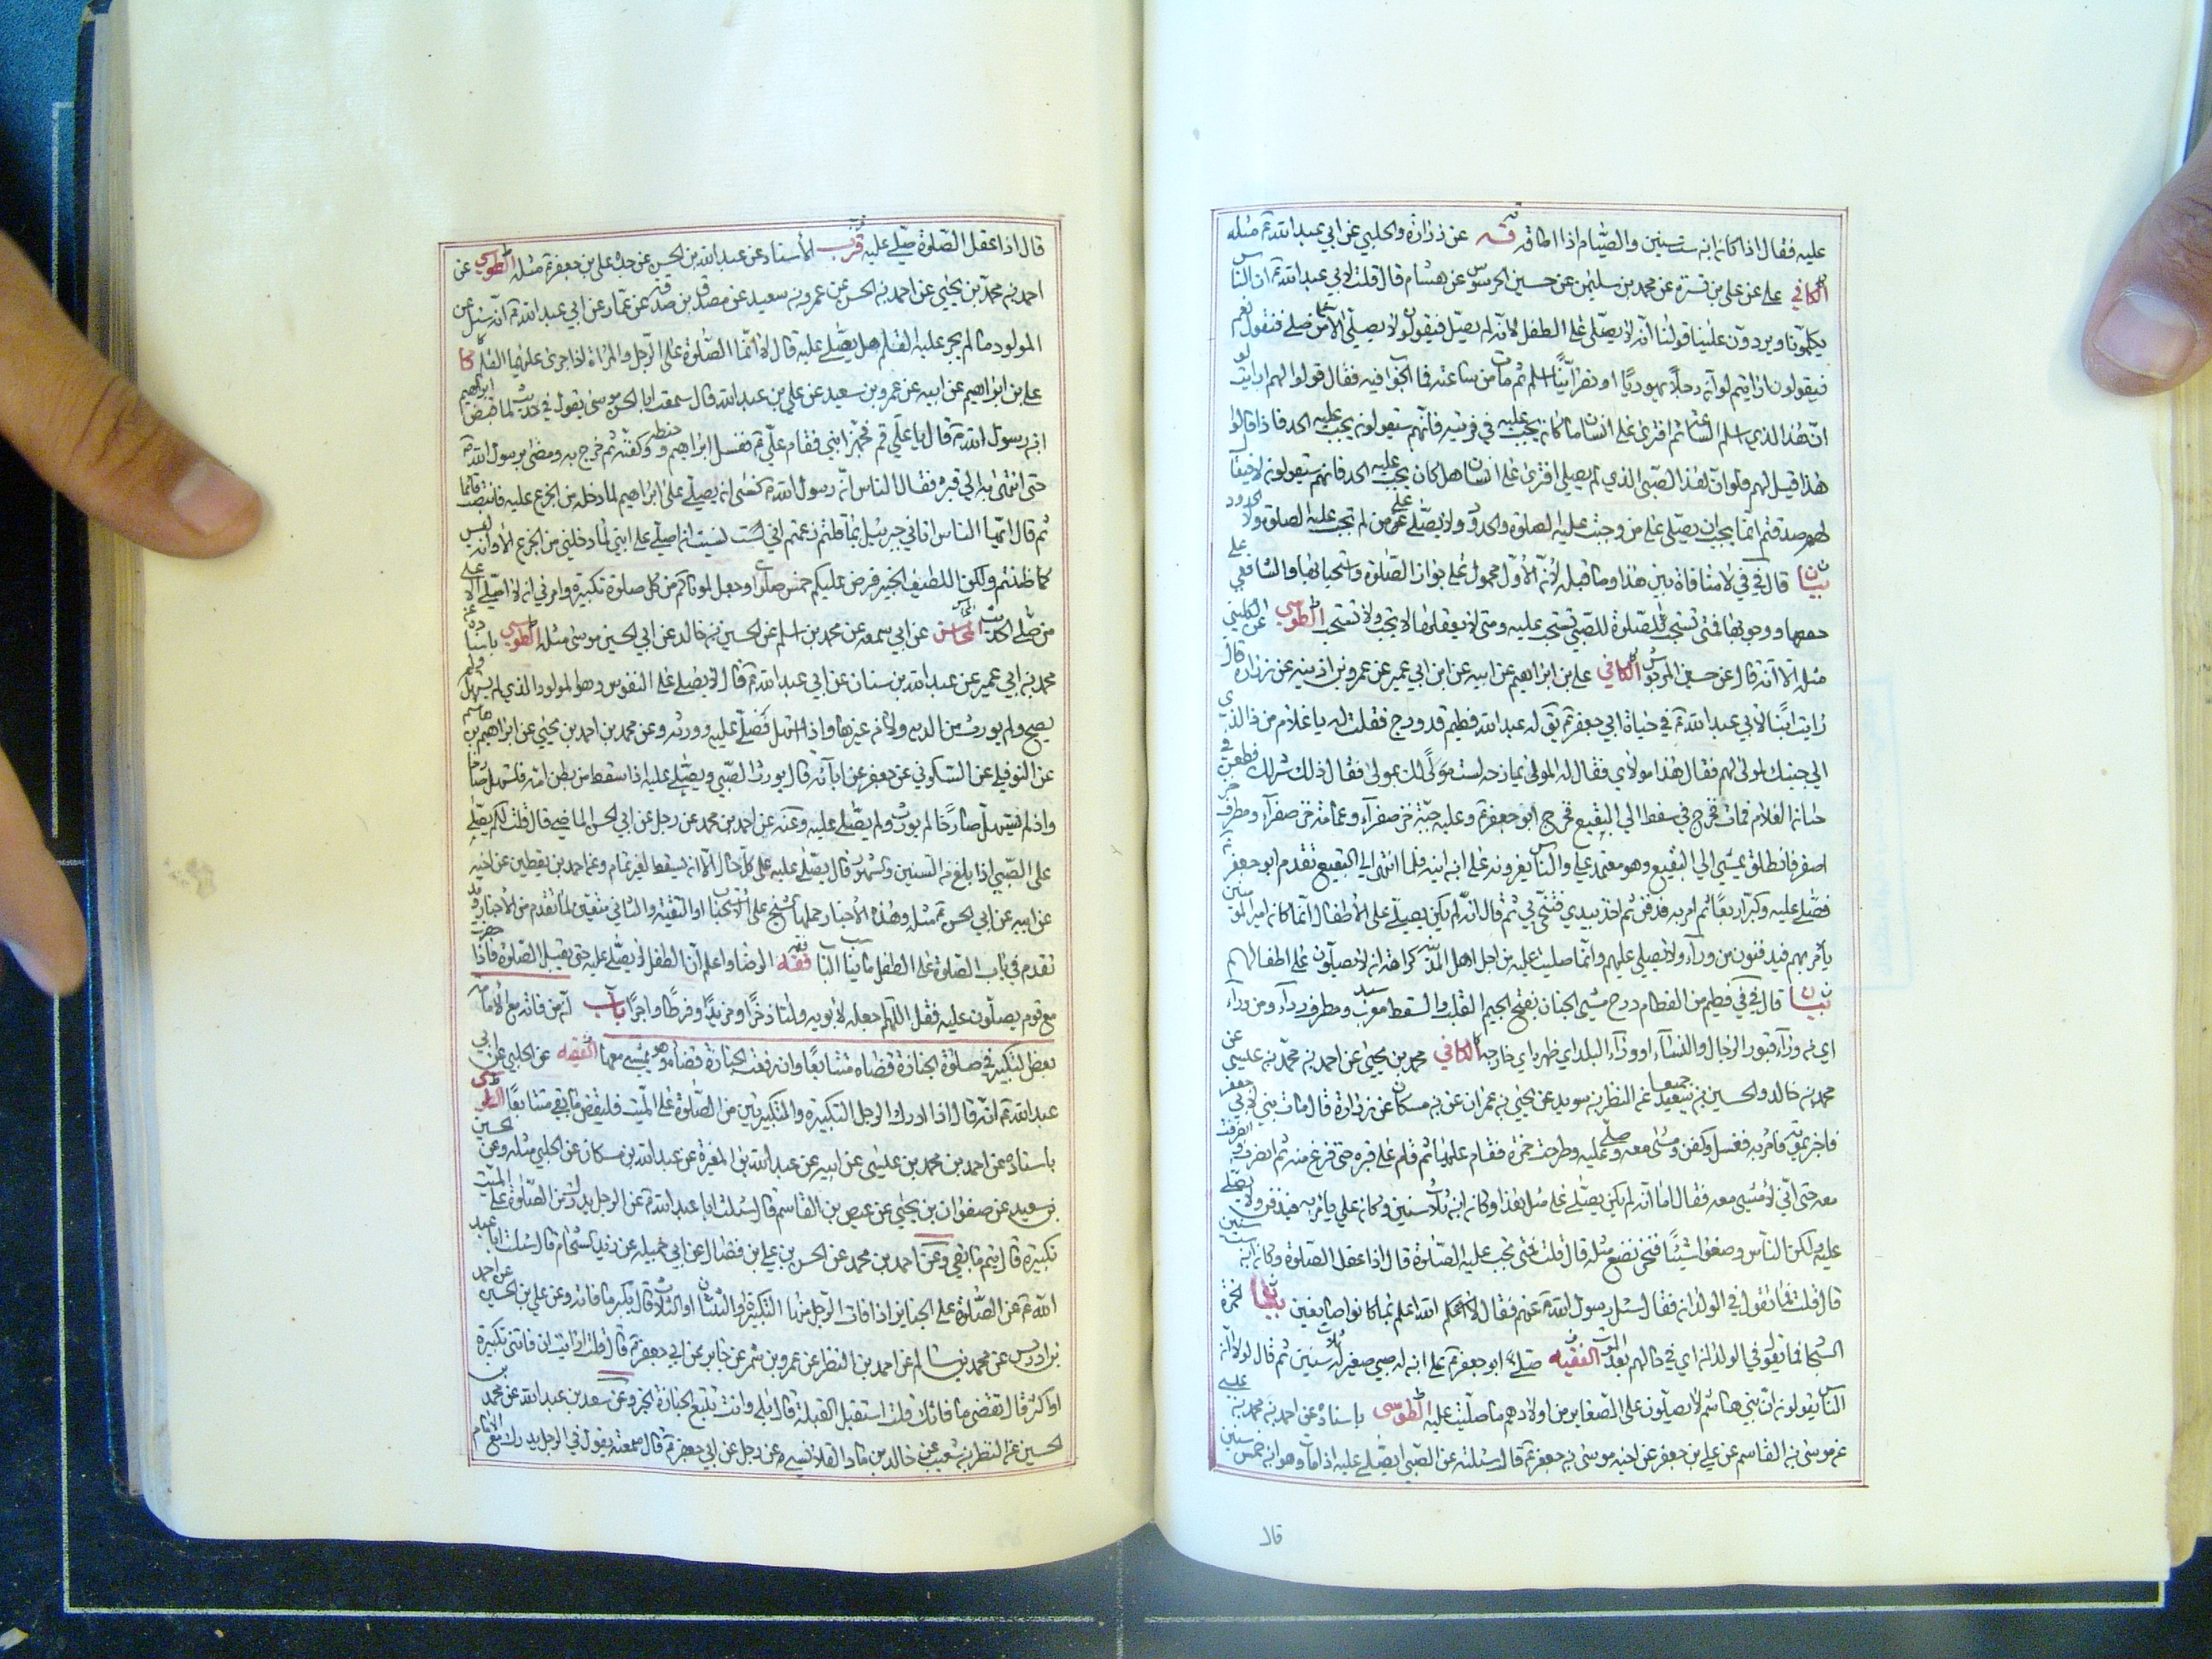 عليه فقال اذا كان ابن ست سنين والصيام اذا اطاقه عن زرارة والحلبي عن ابي عبد الله ع مثله
الكافي علي عن علي بن محمد بن سليمن عن حسين الحرسوسي عن هشام قال قلت لابي عبد الله ع ان الناس
يكلمونا ويردون علينا قولنا انه لا يصلى على الطفل لانه لم يصل فيقولون لا يصلي الا على من صلى فنقول نعم
فيقولون ارايتم لو ان رجلا يهوديا او نصرانيا اسلم ثم مات من ساعته فما الجواب فيه فقال قولوا لهم ارايت لو
ان هذا الذي اسلم الساعة ثم افترى على انسان ما كان يجب عليه في فريته فانهم سيقولون يجب عليه الحد فاذا قالوا
هذا قيل لهم فلو ان هذا الصبي الذي لم يصل افترى على انسان هل كان يجب عليه الحد فانهم سيقولون لا فيقال
لهم صدقتم انما يجب ان يصلى على من وجبت عليه الصلوة والحدود ولا يصلى على من لم تجب عليه الصلوة ولا الحدود
بيان قال في لا منافاة بين هذا وما قبله لان الاول محمول على جواز الصلوة واستحبابها والثاني على
حتمها ووجوبها فمتى تستحب الصلوة للصبي تستحب عليه ومتى لا يعقلها لا تجب ولا تستحب الطوسي عن الكليني
مثله الا انه قال عن حسين المرجوس الكافي علي بن ابراهيم عن ابيه عن ابن ابي عمير عن عمر بن اذينه عن زرارة قال
رايت ابنا لابي عبد الله ع في حياة ابي جعفر ع يق له عبد الله فطيم قد درج فقلت له يا غلام من ذا الذي
الى جنبك لمولى لهم فقال هذا مولاي فقال له المولى يمازحه لست لك بمولى فقال ذلك شر لك فطعن في
جنازة الغلام فمات فخرج في سفط الى البقيع فخرج ابو جعفر ع وعليه جبة خز صفراء وعمامة خز صفراء ومطرف خز
اصفر فانطلق يمشي الى البقيع وهو معتمد علي والناس يعزونه على ابن ابنه فلما انتهى الى البقيع تقدم ابو جعفر ع
فصلى عليه وكبر اربعا ثم امر به فدفن ثم اخذ بيدي فتنحى بي ثم قال انه لم يكن يصلى على الاطفال انما كان امير المؤمنين
يأمر بهم فيدفنون من وراء ولا يصلي عليهم وانما صليت عليه من اجل اهل المدينة كراهة ان يقولوا لا يصلون على اطفالهم
بيان قال في فطيم من الفطام درج مشى الجنان بفتح الجيم القلب والسفط معرب سبد ومطرف رداء ومن وراء
اي من وراء قبور الرجال والنساء او وراء البلد اي ظهره اي خارجه الكافي محمد بن يحيى عن احمد بن محمد بن عيسى عن
محمد بن خالد والحسين بن سعيد جميعا عن النظر بن سويد عن يحيى بن عمران عن بن مسكان عن زرارة قال مات بني لابي جعفر ع
فاخبر بموته فامر به فغسل وكفن ومشى معه وصلى عليه وطرحت خمرة فقام عليها ثم قام على قبره حتى فرغ منه ثم انصرف وانصرفت
معه حتى اني لامشي معه فقال اما انه لم يكن يصلى على مثل هذا وكان ابن ثلث سنين وكان علي يأمر به فيدفن ولا يصلي
عليه ولكن الناس صنعوا شيئا فنحن نصنع مثله قال قلت فمتى تجب عليه الصلوة قال اذا عقل الصلوة وكان ابن ست سنين
قال قلت فما تقول في الولدان فقال سئل رسول الله ص عنهم فقال الله اعلم بما كانوا عاملين بيان الخمرة
السجادة فما تقول في الولدان اي في حالهم بعد الموت الفقيه صلى ابو جعفر ع على ابن له صبي صغير له ثلث سنين ثم قال لولا ان
الناس يقولون ان بني هاشم لا يصلون على الصغار من اولادهم ما صليت عليه الطوسي باسناده عن احمد بن محمد بن عيسى
عن موسى بن القاسم عن علي بن جعفر عن اخيه موسى بن جعفر ع قال سئلته عن الصبي ايصلى عليه اذا مات وهو ابن خمس سنين
قال
قال اذا عقل الصلوة صلي عليه قرب الاسناد عن عبد الله بن الحسن عن جده علي بن جعفر ع مثله الطوسي عن
احمد بن محمد بن يحيى عن احمد بن الحسن عن عمرو بن سعيد عن مصدق بن صدقه عن عمار عن ابي عبد الله ع انه سئل عن
المولود ما لم يجر عليه القلم هل يصلى عليه قال لا انما الصلوة على الرجل والمراة اذا جرى عليهما القلم كا
علي بن ابراهيم عن ابيه عن عمرو بن سعيد عن علي بن عبد الله قال سمعت ابا الحسن موسى يقول في حديث لما قبض ابراهيم
ابن رسول الله ص قال يا علي قم فجهز ابني فقام علي ع فغسل ابراهيم وحنطه وكفنه ثم خرج به ومضى رسول الله ص
حتى انتهى به الى قبره فقال الناس ان رسول الله ص نسي ان يصلي على ابراهيم لما دخله من الجزع عليه فانتصب قائما
ثم قال ايها الناس اتاني جبرئيل بما قلتم زعمتم اني نسيت ان اصلي على ابني لما دخلني من الجزع الا وانه ليس
كما ظننتم ولكن اللطيف الخبير فرض عليكم خمس صلوات وجعل لموتاكم من كل صلوة تكبيرة وامرني ان لا اصلي الا على
من صلى الحديث المحاسن عن ابي سمينه عن محمد بن اسلم عن الحسين بن خالد عن ابي الحسن موسى مثله الطوسي باسناده عن
محمد بن ابي عمير عن عبد الله بن سنان عن ابي عبد الله ع قال لا يصلى على المنفوس وهو المولود الذي لم يستهل ولم
يصح ولم يورث من الدية ولا من غيرها واذا استهل فصل عليه وورثه وعن محمد بن احمد بن يحيى عن ابراهيم بن هاشم
عن النوفلي عن السكوني عن جعفر عن ابائه قال يورث الصبي ويصلى عليه اذا سقط من بطن امه فاستهل صارخا
واذا لم يستهل صارخا لم يورث ولم يصلى عليه وعنه عن احمد بن محمد عن رجل عن ابي الحسن الماضي قال قلت لكم يصلى
على الصبي اذا بلغ من السنين والشهور قال يصلى عليه على كل حال الا ان يسقط لغير تمام وعن احمد بن يقطين عن اخيه
عن ابيه عن ابي الحسن ع مثله وهذه الاخبار حملها الشيخ على الاستحباب او التقية والثاني متعين لما تقدم من الاخبار وقد
تقدم في باب الصلوة على الطفل ما ينا فقه الرضا واعلم ان الطفل لا يصلى عليه حتى يعقل الصلوة فاذا حضرت
مع قوم يصلون عليه فقل اللهم اجعله لابويه ولنا ذخرا ومزيدا وفرطا واجرا باب ان من فاته مع الامام
بعض التكبير في صلوة الجنازة قضاه متتابعا وان رفعت الجنازة قضاه وهو يمشي معها الفقيه عن الحلبي عن ابي
عبد الله ع انه قال اذا ادرك الرجل التكبيرة والتكبيرتين من الصلوة على الميت فليقض ما بقي متتابعا الطوسي
باسناده عن احمد بن محمد بن عيسى عن ابيه عن عبد الله بن المغيرة عن عبد الله بن مسكان عن الحلبي مثله وعن الحسين
بن سعيد عن صفوان بن يحيى عن عيص بن القاسم قال سئلت ابا عبد الله ع عن الرجل يدرك من الصلوة على الميت
تكبيرة قال يتم ما بقي وعن احمد بن محمد عن الحسن بن علي بن فضال عن ابي جميله عن زيد الشحام قال سئلت ابا عبد
الله ع عن الصلوة على الجنايز اذا فات الرجل منها التكبيرة او الثنتان او الثلاث قال يكبر ما فاته وعن علي بن الحسين عن احمد
بن ادريس عن محمد بن سالم عن احمد بن النظر عن عمرو بن شمر عن جابر عن ابي جعفر ع قال قلت ارايت ان فاتتني تكبيرة
او اكثر قال تقضي ما فاتك قلت استقبل القبلة قال بلى وانت تتبع الجنازة الخبر وعن سعد بن عبد الله عن محمد بن
الحسين عن النظر بن شعيب عن خالد بن ماد القلانسي عن رجل عن ابي جعفر ع قال سمعته يقول في الرجل يدرك مع الامام